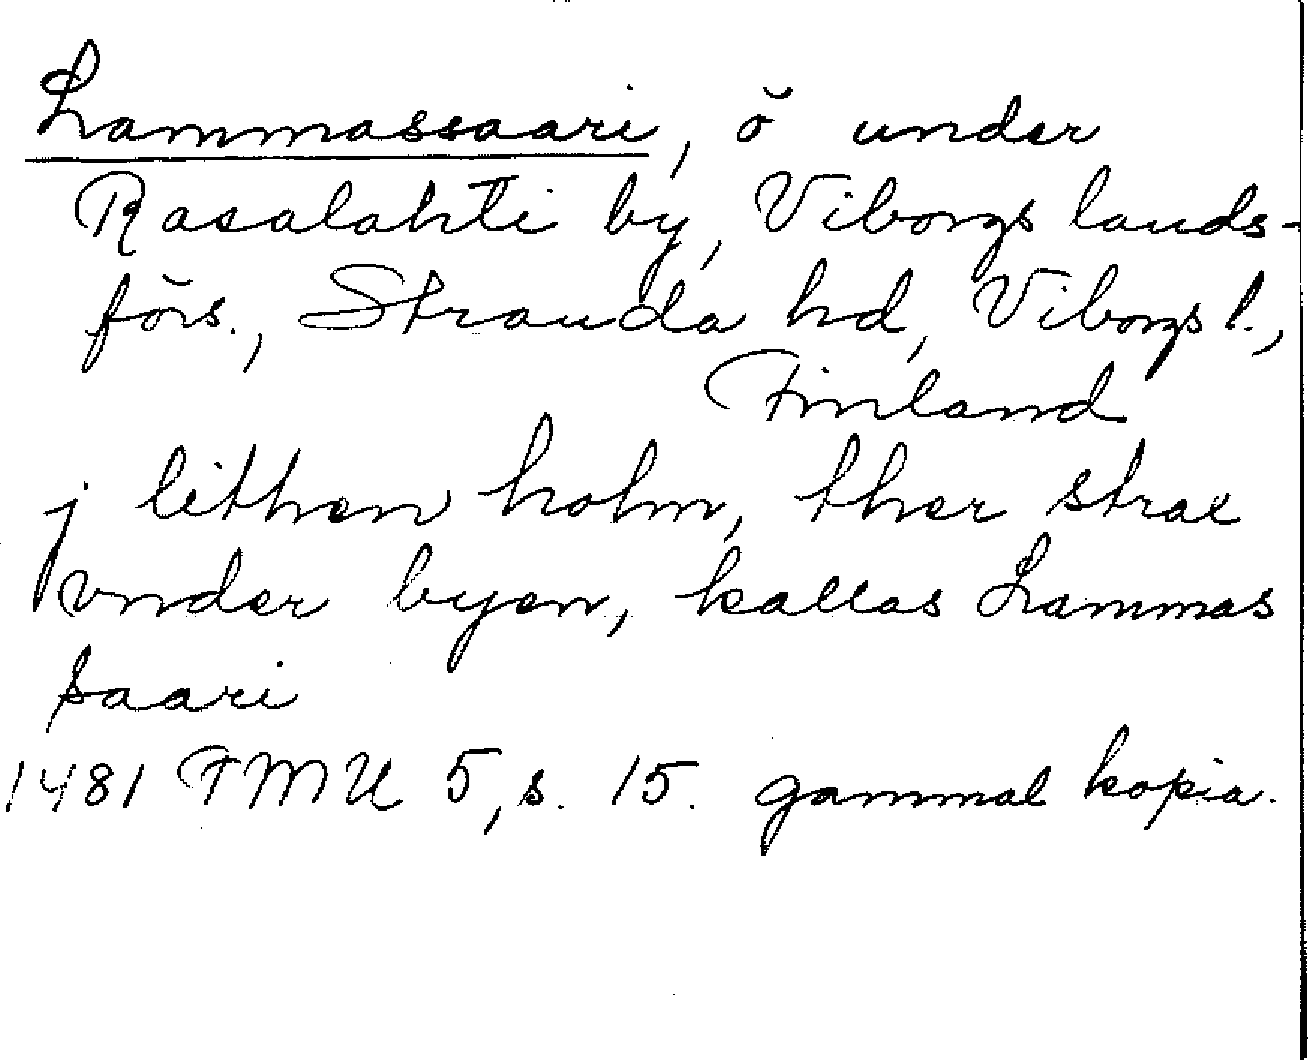 Lammassaari, ö under
Rasalahti by, Viborgs lands-
förs., Stranda hd, Viborgs l.,
Finland
j lithen holm, ther strax
vnder byen, kallas Lammas
saari
1481 FMU 5, s. 15. gammal kopia.